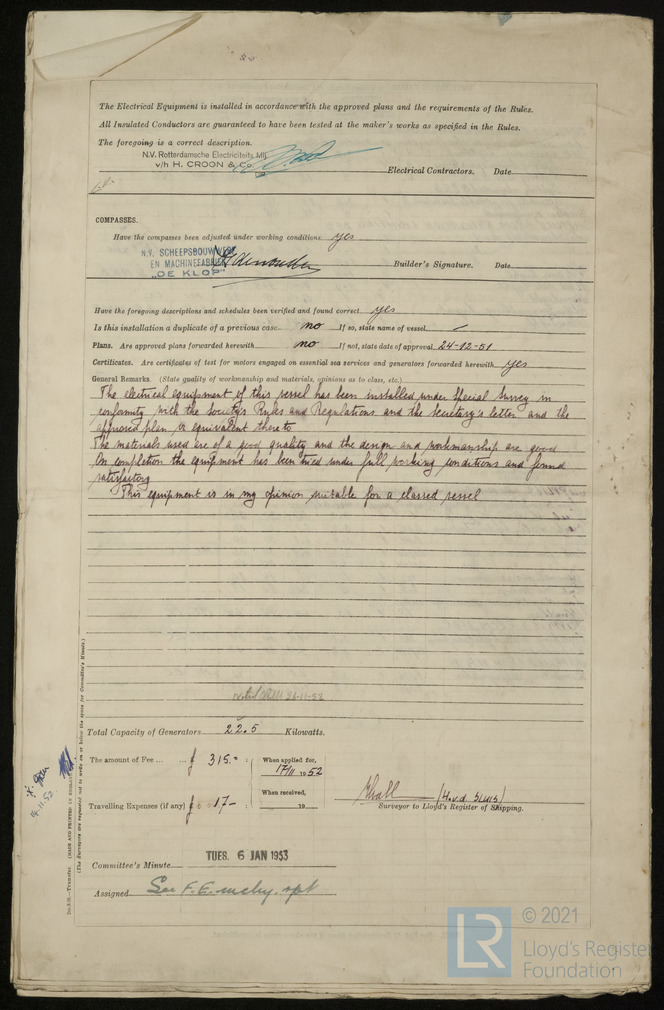 The Electrical Equipment is installed in accordance with the approved plans and the requirements of the Rules.
All Insulated Conductors are guaranteed to have been tested at the maker's works as specified in the Rules.
The foregoing is a correct description.
N.V. Rotterdamsche Electriciteits Mij.
v/h H. CROON & Co.
Electrical Contractors. Date
COMPASSES.
Have the compasses been adjusted under working conditions yes
N.V. SCHEEPSBOUWWERF
EN MACHINEFABRIEK
"DE KLOP"
Builder's Signature. Date
Have the foregoing descriptions and schedules been verified and found correct yes
Is this installation a duplicate of a previous case no If so, state name of vessel
Plans. Are approved plans forwarded herewith no If not, state date of approval 24-12-51
Certificates. Are certificates of test for motors engaged on essential sea services and generators forwarded herewith yes
General Remarks. (State quality of workmanship and materials, opinions as to class, etc.)
The electrical equipment of this vessel has been installed under Special Survey in
conformity with the Society's Rules and Regulations and the Secretary's letter and the
approved plan or equivalent thereto
The materials used are of a good quality and the design and workmanship are good
On completion the equipment has been tried under full working conditions and found
satisfactory
This equipment is in my opinion suitable for a classed vessel
Total Capacity of Generators 22.5 Kilowatts.
The amount of Fee £ 315.- : When applied for,
17/11 1952
When received,
Travelling Expenses (if any) £ 17- : 19
Surveyor to Lloyd's Register of Shipping.
Committee's Minute TUES. 6 JAN 1953
Assigned See F.E. mchy. rpt
(The Surveyors are requested not to write on or below the space for Committee's Minute.)
© 2021
LR
Lloyd's Register
Foundation